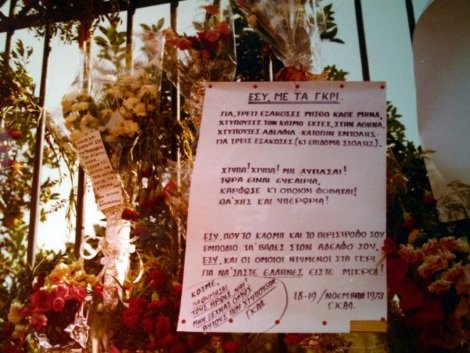 ΕΣΥ, ΜΕ ΤΑ ΓΚΡΙ.
ΓΙΑ ΤΡΕΙΣ ΕΞΑΚΟΣΕΣ ΜΙΣΘΟ ΚΑΘΕ ΜΗΝΑ,
ΧΤΥΠΟΥΣΕΣ ΤΟΝ ΚΟΣΜΟ ΕΧΤΕΣ, ΣΤΗΝ ΑΘΗΝΑ.
ΧΤΥΠΟΥΣΕΣ ΑΔΕΛΦΙΑ - ΚΑΤΟΠΙΝ ΕΝΤΟΛΗΣ -
ΓΙΑ ΤΡΕΙΣ ΕΞΑΚΟΣΕΣ (ΚΙ ΕΠΙΔΟΜΑ ΣΤΟΛΗΣ).
ΧΤΥΠΑ! ΧΤΥΠΑ! ΜΗ ΛΥΠΑΣΑΙ!
ΤΩΡΑ ΕΙΝΑΙ ΕΥΚΑΙΡΙΑ,
ΚΑΡΦΩΣΕ ΚΙ ΟΠΟΙΟΝ ΦΟΒΑΣΑΙ!
ΘΑ'ΧΗΣ ΚΑΙ ΥΠΕΡΩΡΙΑ!
ΕΣΥ, ΠΟΥ ΤΟ ΚΛΟΜΠ ΚΑΙ ΤΟ ΠΕΡΙΣΤΡΟΦΟ ΣΟΥ
ΕΜΠΟΔΙΟ ΤΑ 'ΒΑΛΕΣ ΣΤΟΝ ΑΔΕΛΦΟ ΣΟΥ,
ΕΣΥ, ΚΑΙ ΟΙ ΟΜΟΙΟΙ ΝΤΥΜΕΝΟΙ ΣΤΑ ΓΚΡΙ
ΓΙΑ ΝΑ 'ΣΑΣΤΕ ΕΛΛΗΝΕΣ ΕΙΣΤΕ ΜΙΚΡΟΙ!
18-19/ΝΟΕΜΒΡΗ 1973
Γ.Κ.ΑΔ.
ΚΟΣΜΕ,
ΤΟΥΣ ΗΡΩΕΣ ΚΑΙ
ΜΗΝ ΞΕΧΝΑΣ ΟΜΩΣ
ΑΥΤΟΥΣ ΠΟΥ ΧΤΥΠΟΥΣΑΝ